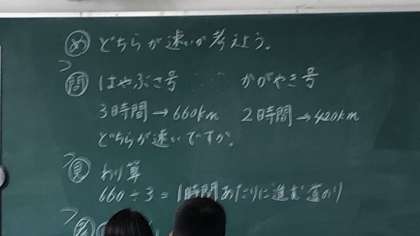 め どちらが速いか考えよう。
問 はやぶさ号 かがやき号
3時間→660km 2時間→420km
どちらが速いですか。
見 わり算
660÷3=1時間あたりに進む道のり